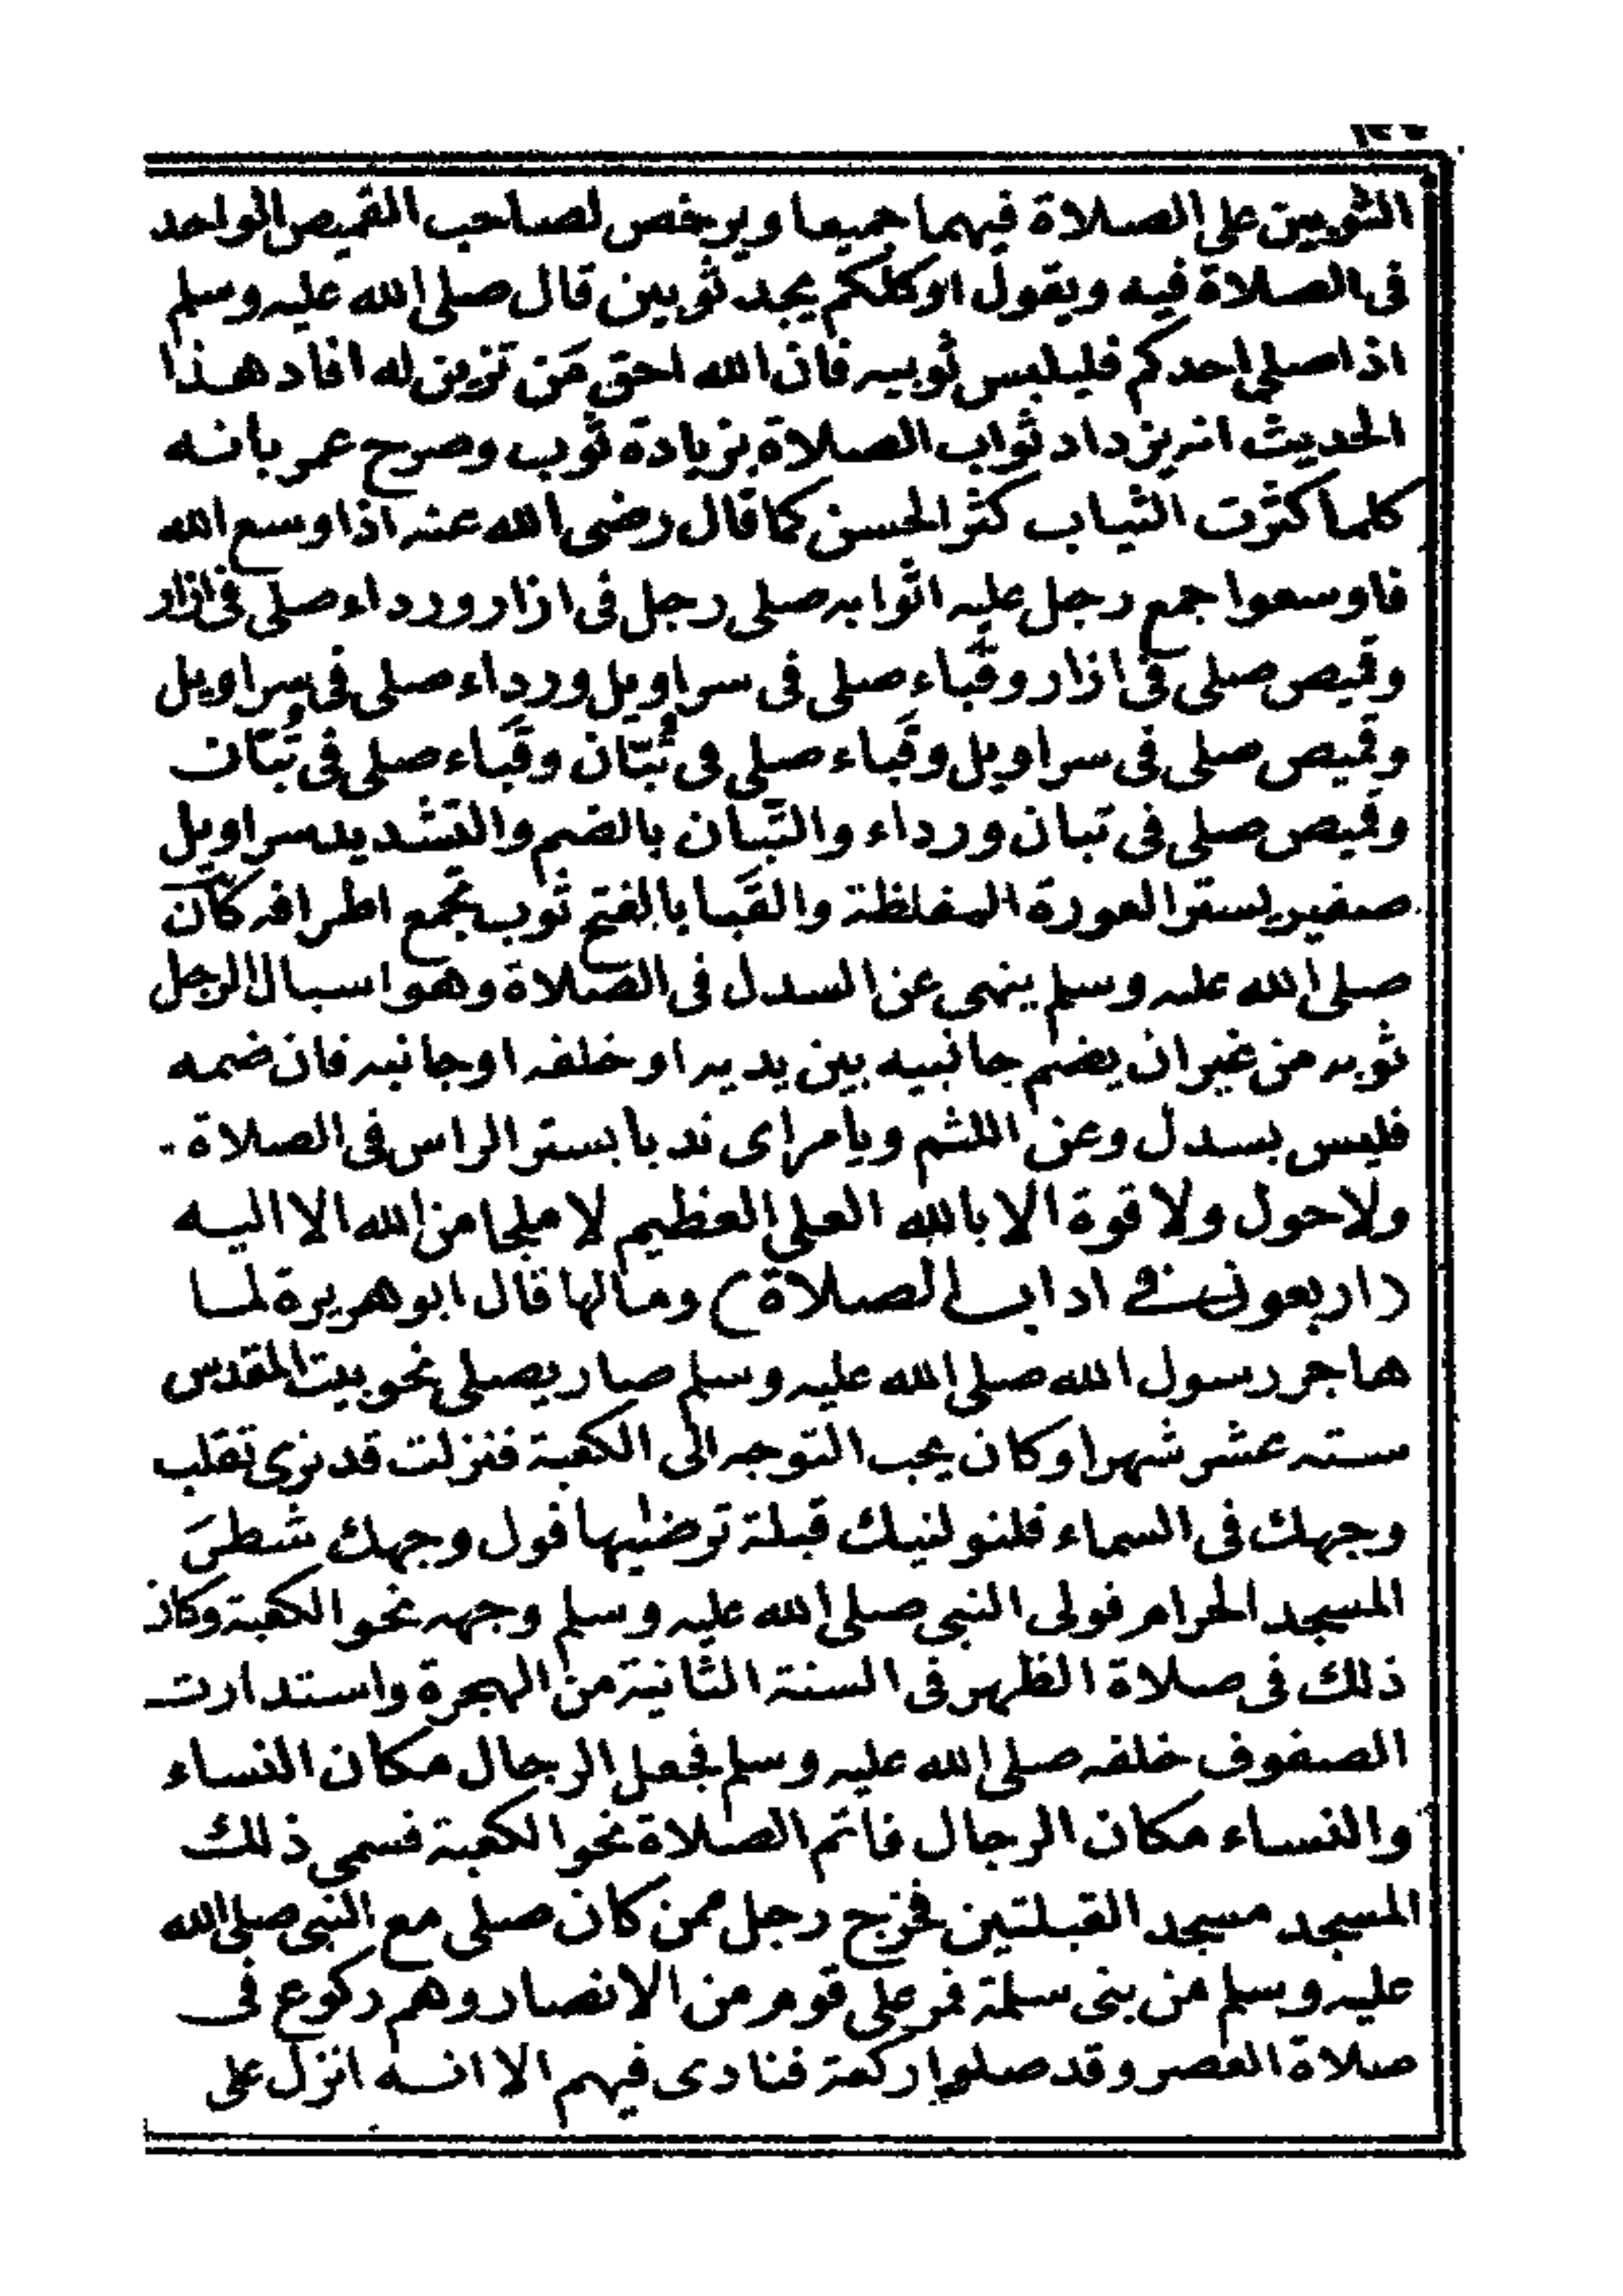 الثوبين على الصلاة فيهما جميعا ويرخص لصاحب القميص الواحد
فى الصلاة فيه ويقول اوكلكم يجد ثوبين قال صلى الله عليه وسلم
اذا صلى احدكم فليلبس ثوبيه فان الله احق مَن تزين له افاد هذا
الحديث انه يزداد ثواب الصلاة بزيادة ثوب وصرح عمر بانه
كلما كثرت الثياب كثر الحسن كما قال رضى الله عنه اذا وسع الله
فاوسعوا جمع رجل عليه اثوابه صلى رجل فى ازار ورداء صلى فى ازار
وقميص صلى فى ازار وقَباء صلى فى سراويل ورداء صلى فى سراويل
وقميص صلى فى سراويل وقَباء صلى فى تُبّان وقَباء صلى فى تُبّان
وقميص صلى فى تبان ورداء والتّبان بالضم والتشديد سراويل
صغير يستر العورة المغلظة والقَبا بالفتح ثوب تجمع اطرافه كان
صلى الله عليه وسلم ينهى عن السدل فى الصلاة وهو اسبال الرجل
ثوبه من غير ان يضم جانبيه بين يديه او خلفه او جانبه فان ضمه
فليس بسدل وعن اللثم ويامر اى ندبا بستر الراس فى الصلاة .
ولا حول ولا قوة الا بالله العلى العظيم لا ملجا من الله الا اليه
(اربعون فى اداب الصلاة) ومالها قال ابو هريرة لما
هاجر رسول الله صلى الله عليه وسلم صار يصلى نحو بيت المقدس
سته عشر شهرا وكان يحب التوجه الى الكعبة فنزلت قد نرى تقلب
وجهك فى السماء فلنولينك قبلة ترضيها فول وجهك شطرَ
المسجد الحرام فولى النبى صلى الله عليه وسلم وجهه نحو الكعبة وكان
ذلك فى صلاة الظهر فى السنة الثانية من الهجرة واستدارت
الصفوف خلفه صلى الله عليه وسلم فجعل الرجال مكان النساء
والنساء مكان الرجال فاتم الصلاة نحو الكعبة فسمى ذلك
المسجد مسجد القبلتين فخرج رجل ممن كان صلى مع النبى صلى الله
عليه وسلم من بنى سلمة فمر على قوم من الانصار وهم ركوع فى
صلاة العصر وقد صلوا ركعة فنادى فيهم الا انه انزل على